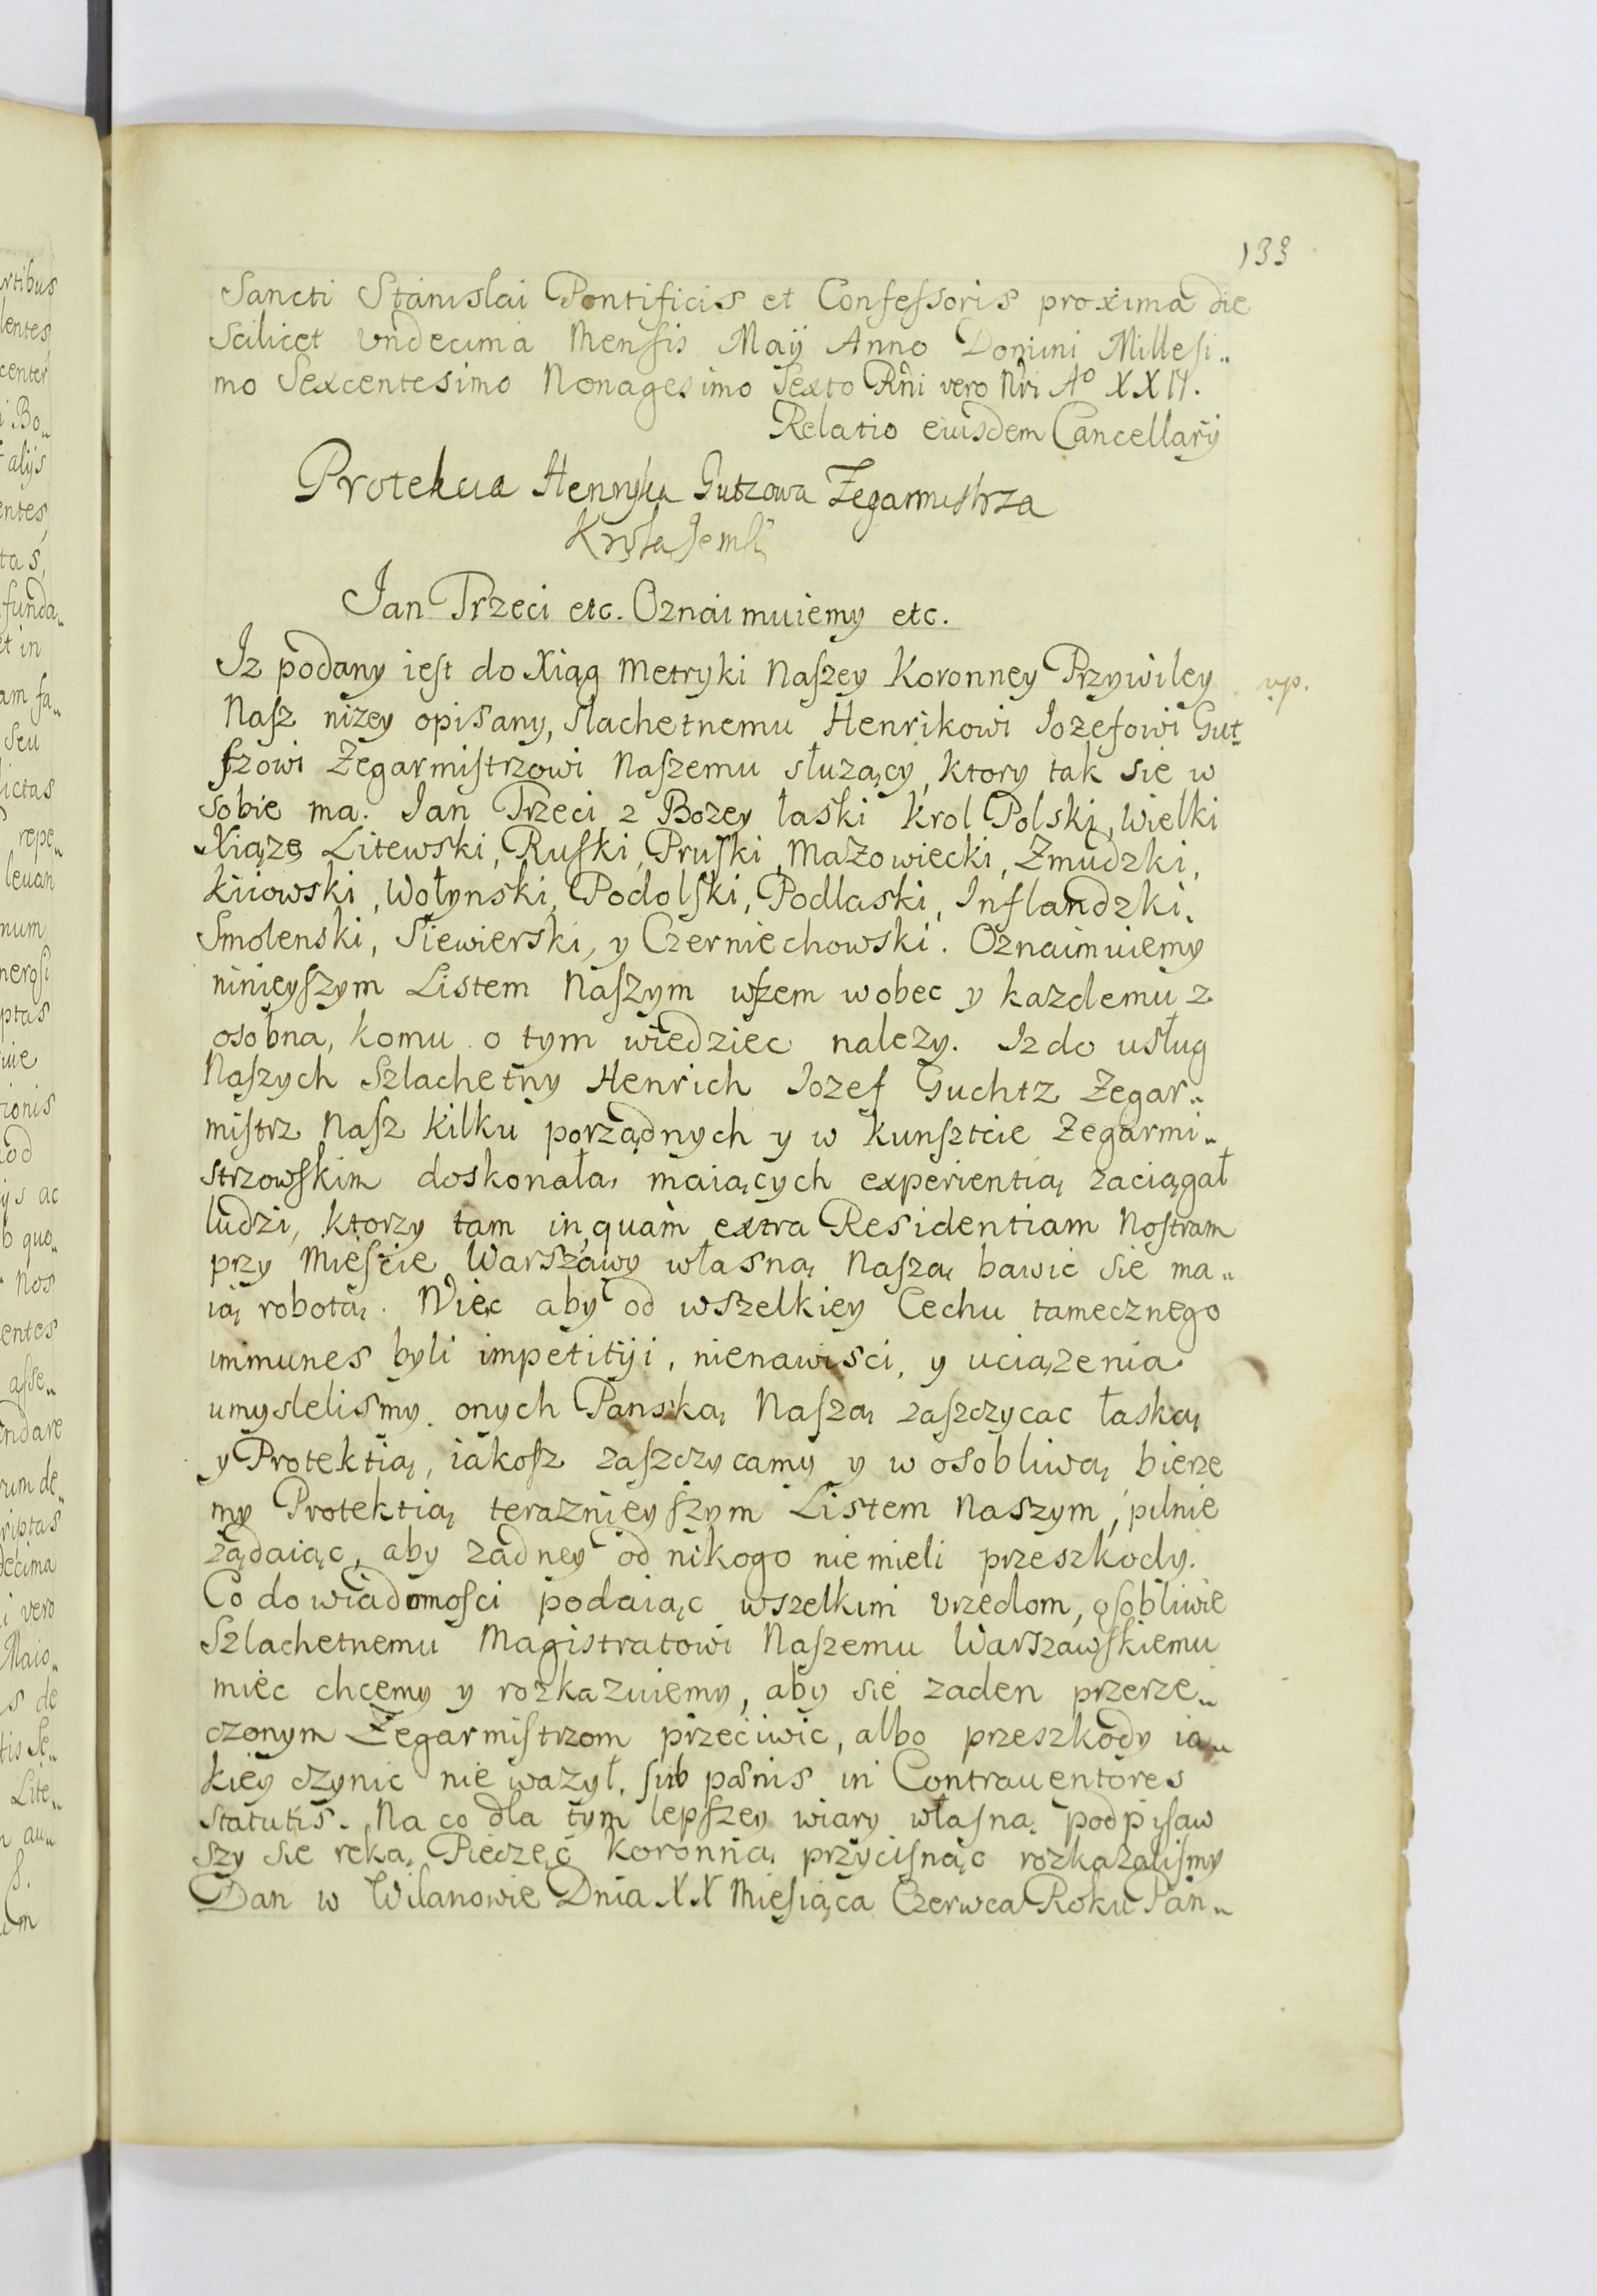 133
Sancti Stanislai Pontificis et Confessoris proxima die
Scilicet Vndecima Mensis Maij Anno Domini Millesi„
mo Sexcentesimo Nonagesimo Sexto Rñi vero Nri Aº XXII.
Relatio eiusdem Cancellarij
Protekcia Henryka Gutzowa Zegarmistrza
Krola Jemsci
Jan Trzeci etc. Oznaimuiemy etc.
Iz podany iest do Xiąg Metryki Naszey Koronney Przywiley
Nasz nizey opisany, slachetnemu Henrikowi Iozefowi Gut„
szowi Zegarmistrzowi Naszemu słuzący, ktory tak sie w
sobie ma. Ian Trzeci z Bozey łaski Krol Polski, Wielki
Xiąze Litewski, Ruski, Pruski, Mazowiecki, Zmudzki,
Kiiowski, Wołynski, Podolski, Podlaski, Inflandzki,
Smolenski, Siewierski, y Czerniechowski. Oznaimuiemy
ninieyszym Listem Naszym wszem wobec y kazdemu z
osobna, komu o tym wiedziec nalezy. Iz do usług
Naszych Szlachetny Henrich Iozef Guchtz Zegar„
mistrz Nasz kilku porządnych y w kunsztcie Zegarmi„
strzowskim doskonałą maiących experientią zaciągał
ludzi, ktorzy tam in, quam extra Residentiam Nostram
przy Mieście Warszawy własną Naszą bawic sie ma„
ią robotą. Więc aby od wszelkiey Cechu tamecznego
immunes byli impetitiji, nienawisci, y uciązenia
umyslelismy onych Panską Naszą zaszczycac łaską
y Protektią, iakosz zaszczycamy y w osobliwą bierze
my Protektią terazniejszym Listem Naszym, pilnie
ządaiąc, aby zadney od nikogo niemieli przeszkody.
Co do wiadomosci podaiąc wszelkim Vrzedom, osobliwie
Szlachetnemu Magistratowi Naszemu Warszawskiemu
miec chcemy y rozkazuiemy, aby sie zaden przerze„
czonym Zegarmistrzom przeciwic, albo przeszkody ia„
kiey czynic nie wazył. sub pænis in Contrauentores
statutis. Na co dla tym lepszey wiary własną podpisaw
szy sie ręką, Pieczęć Koronną przycisnąc rozkazalismy
Dan w Wilanowie Dnia XX Miesiąca Czerwca Roku Pan„